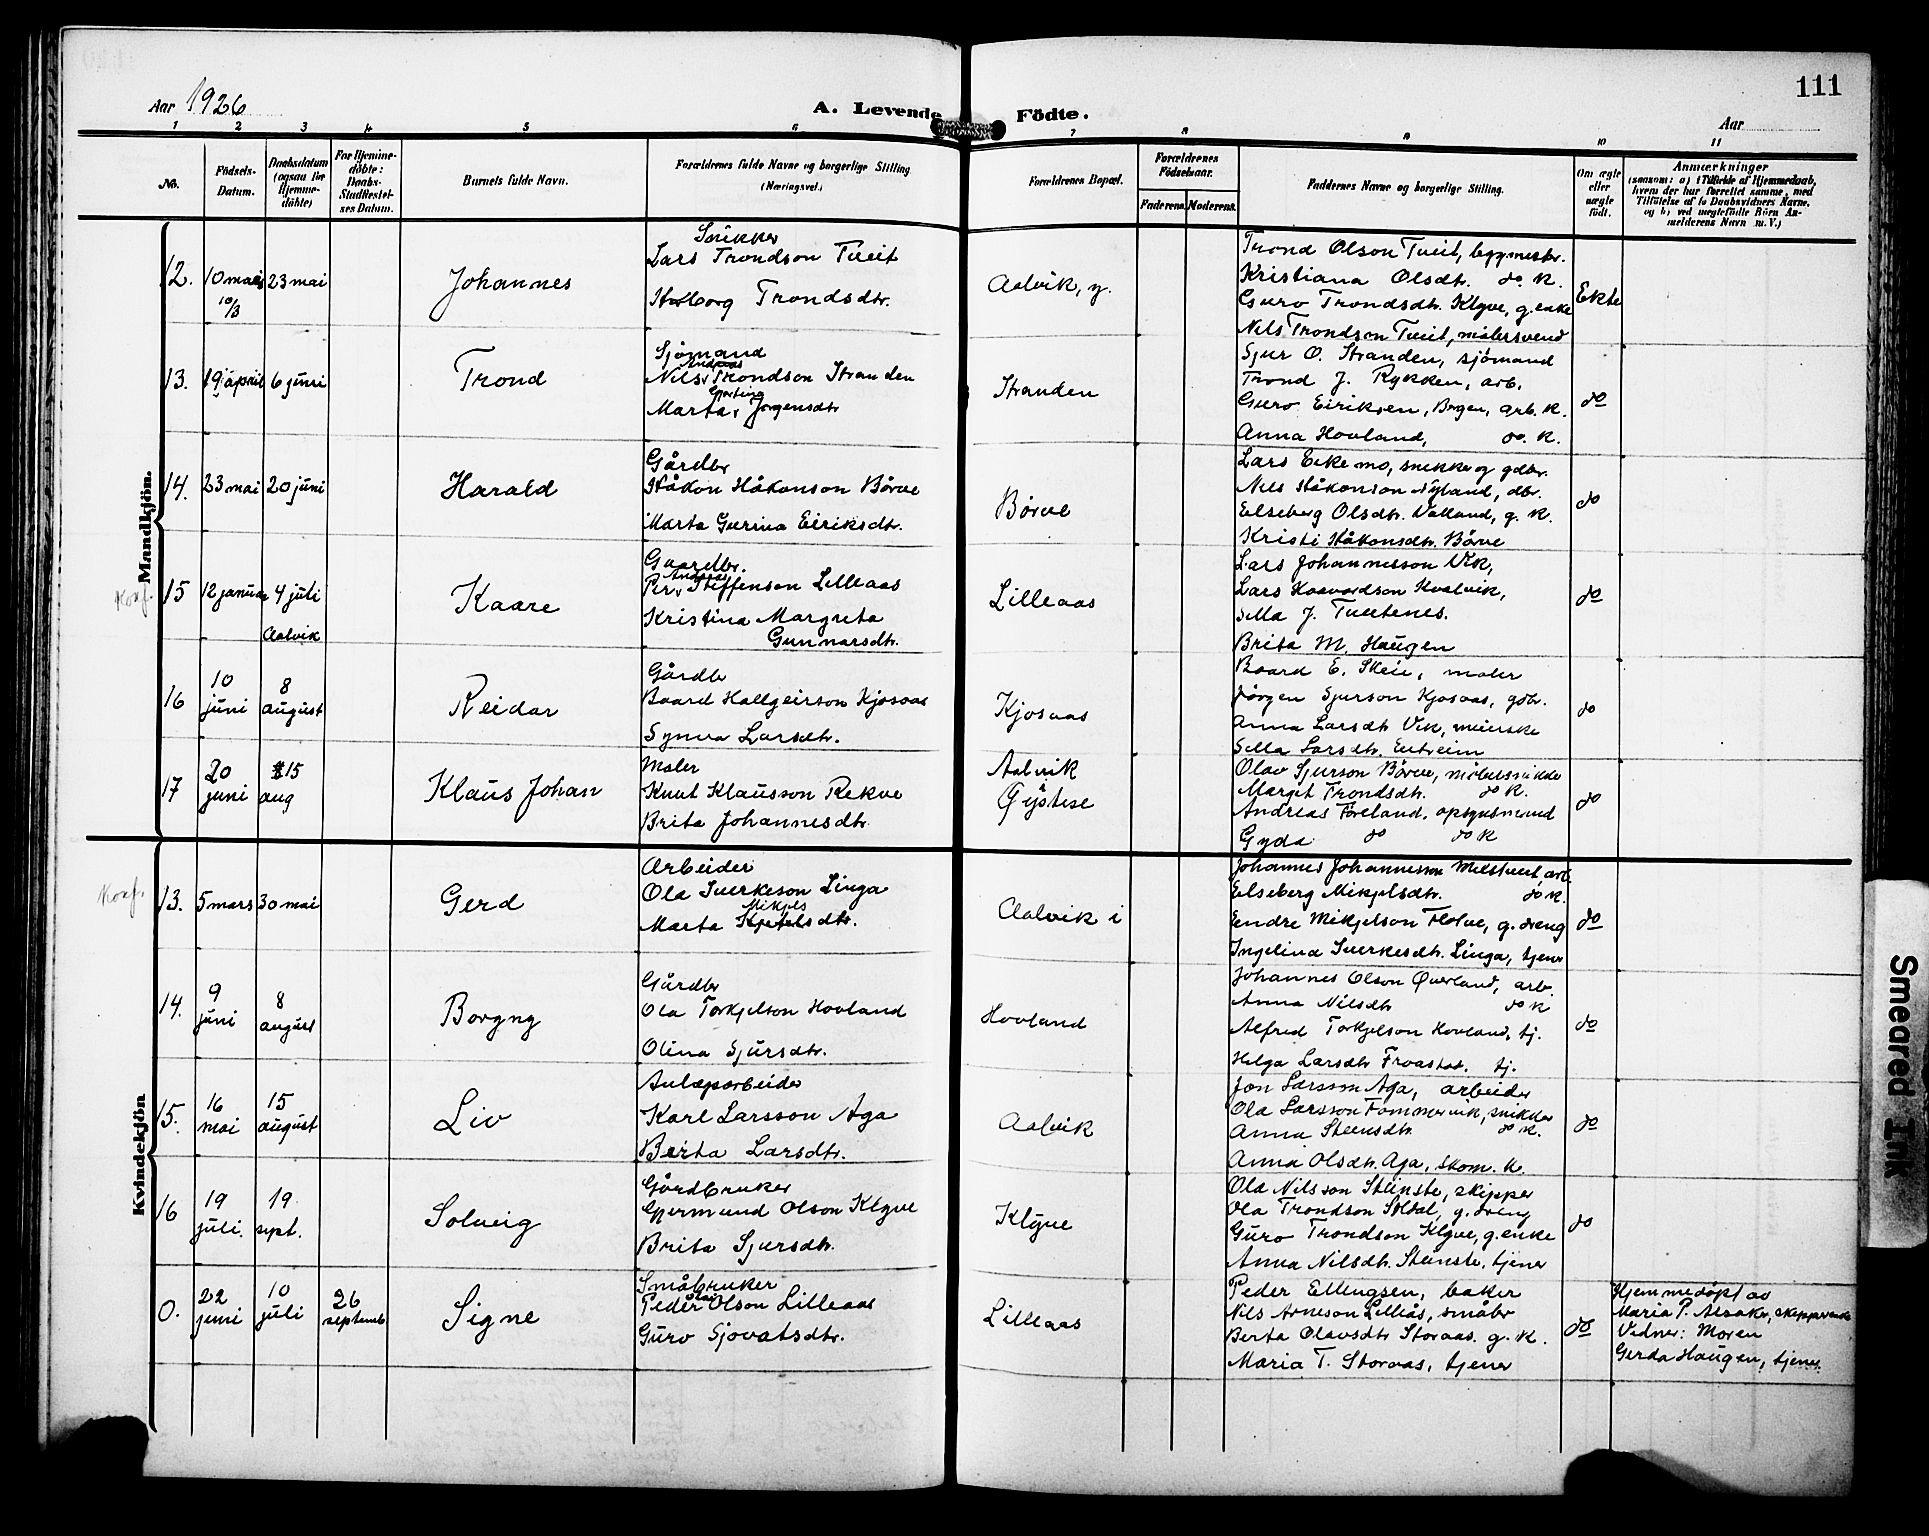 111
Aar 1926
A. Levende Födte.
Aar
1 2 3 4 5 6 7 8 9 10 11
No.
Födsels-
Datum.
Daabsdatum
(ogsaa for
Hjemme-
döbte)
For Hjemme-
döbte:
Daabs-
Stadfæstel-
ses Datum.
Barnets fulde Navn.
Forældrenes fulde Navne og borgerlige Stilling
(Næringsvei.)
Forældrenes Bopæl.
Forældrenes
Födselsaar.
Faderens. Moderens.
Faddernes Navne og borgerlige Stilling.
Om ægte
eller
uægte
födt.
Anmærkninger
(saasom: a) i Tilfælde af Hjemmedaab,
hvem der har forrettet samme, med
Tilföielse af to Daabsvidners Navne,
og b) ved uægtefödte Börn An-
melderens Navn m. V.)
Mandkjön.
12. 10 mars 23 mai
10/3
Johannes
Snikker
Lars Trondson Tveit
Trondsdtr.
Aalvik, y.
Trond Olson Tveit, byggmestr.
Kristiana Olsdt. do k.
Guro Trondsdt. Klyve, g.enke
Nils Trondson Tveit, målersvend
Ekte
13. 19 april 6 juni
Trond
Sjömand
Andreas
Nils Trondson Stranden
Marta Jørgensdtr
Stranden
Sjur O. Stranden, sjömand
Trond J. Rykken, arb.
Guro Eiriksen, Bergen, arb. k.
Anna Hovland, do. k.
do
14. 23 mai 20 juni
Harald
Gårdbr
Håkon Håkonson Börve
Marta Gurina Eiriksdtr.
Börve
Lars Eikemo, snikker og gdbr.
Nils Håkonson Nyland, dbr.
Elseberg Olsdtr. Valland, g. k.
Kristi Håkonsdtr. Börve
do
Konf.
15 12 januar 4 juli
Aalvik
Kaare
Gaardbr.
Andreas
Per Steffenson Lilleaas
Kristina Margreta
Gunnarsdtr.
Lilleaas
Lars Johannesson Vik,
Lars Haavardson Kvalvik,
Sella J. Tveitenes.
Brita M. Haugen
do
16 10 juni 8 august
Reidar
Gårdbr
Baard Hallgeirson Kjosaas
Synva Larsdtr.
Kjosaas
Baard E. Skeie, maler
Jörgen Sjurson Kjosaas, gdbr.
Anna Larsdtr Vik, meierske
Sella Larsdtr. Eitreim
do
17 20 juni 15 aug
Klaus Johan
Maler
Knut Klausson Rekve
Brita Johannesdtr.
Aalvik
Øystese
Olav Sjurson Börve, möbelsnikker
Margit Trondsdtr. do k.
Andreas Föreland, opsynsmand
Gyda do do k
do
Kvindekjön
Konf.
13. 5 mars 30 mai
Gerd
Arbeider
Ola Sverkeson Linga
Mikjels
Marta Kjetelsdtr.
Aalvik i
Johannes Johannesson Melstveit arb.
Elseberg Mikjelsdtr. do k.
Endre Mikjelson Flotve, g. dreng
Ingelina Sverkesdtr. Linga, tjener
do
14. 9 juni 8 august
Borgny
Gårdbr
Ola Torkjelson Hovland
Olina Sjursdtr.
Hovland
Johannes Olson Øverland, arb.
Anna Nilsdtr do k
Alfred Torkjelson Hovland, tj.
Helga Larsdtr. tj.
do
15. 16 mai 15 august
Liv
Anlægsarbeider
Karl Larsson Aga
Berta Larsdtr.
Aalvik
Jon Larsson Aga, arbeider
Ola Larsson snikker
Anna Steinsdtr. do k.
Anna Olsdtr. Aga, skom. k.
do
16 19 juli. 19 sept.
Solveig
Gårdbruker
Gjermund Olson Klyve
Brita Sjursdtr.
Klyve
Ola Nilsson Steinstø, skipper
Ola Trondson Soldal, g. dreng
Guro Trondson Klyve, g. enke
Anna Nilsdtr. Steinstø, tjener
do
0. 22 juni 10 juli 26 septemb
Signe
Småbruker
Peder Olson Lilleaas
Guro Sjovatsdtr.
Lilleaas
Peder Ellingsen, baker
Nils Arneson Lilleås, småbr
Berta Olavsdtr Storaas. g. k.
Maria T. Storaas, tjener
do
Hjemmedöpt av
Maria P. Alsaker, skipperenke
Vidner: Moren
Gerda Haugen, tjener.
Smeared Ink